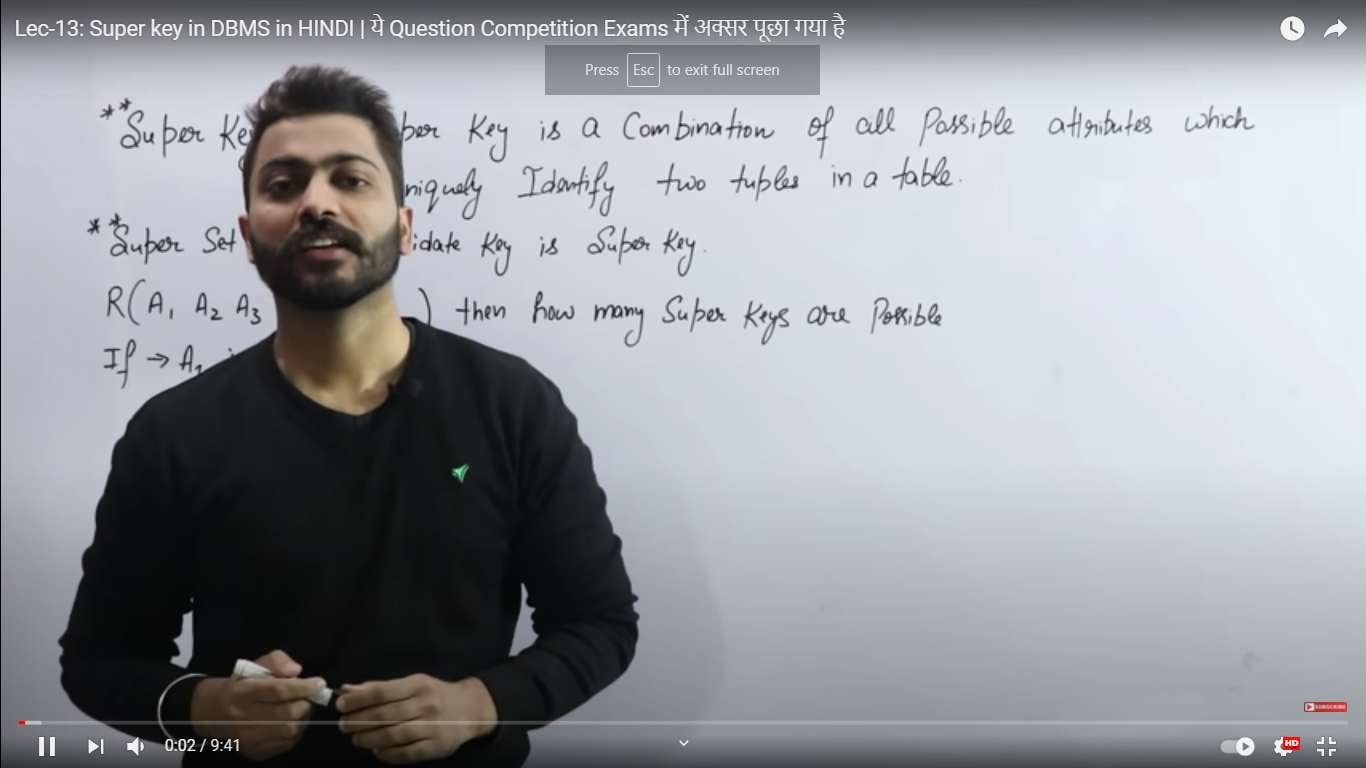 Lec-13: Super key in DBMS in HINDI | ये Question Competition Exams में अक्सर पूछा गया है
Press Esc to exit full screen
**Super Key is a Combination of all Possible attributes which
Identify two tuples in a table.
**Super Set Key is Super Key.
R(A1 A2 A3 ) then how many Super Keys are Possible
If →
SUBSCRIBE
0:02 / 9:41
HD